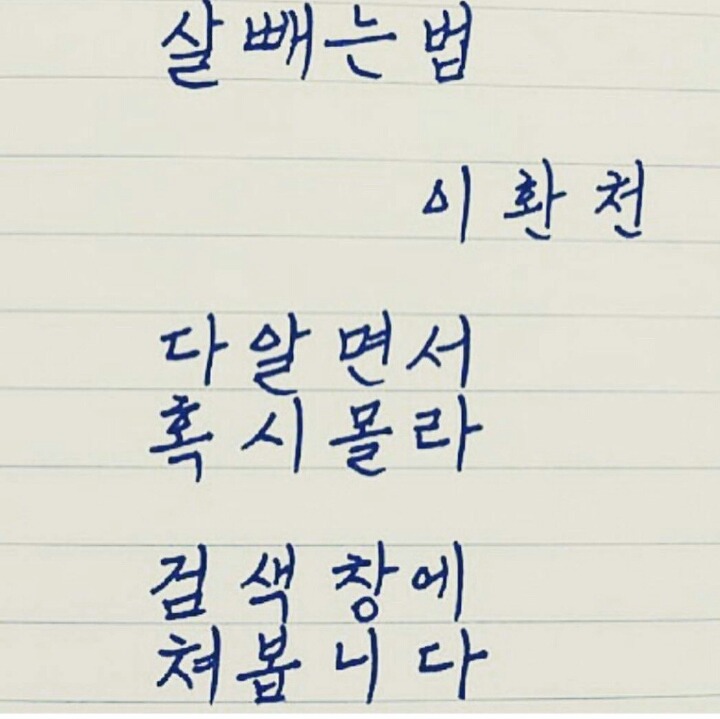 살 빼는 법
이환천
다알면서
혹시몰라
검색창에
쳐봅니다